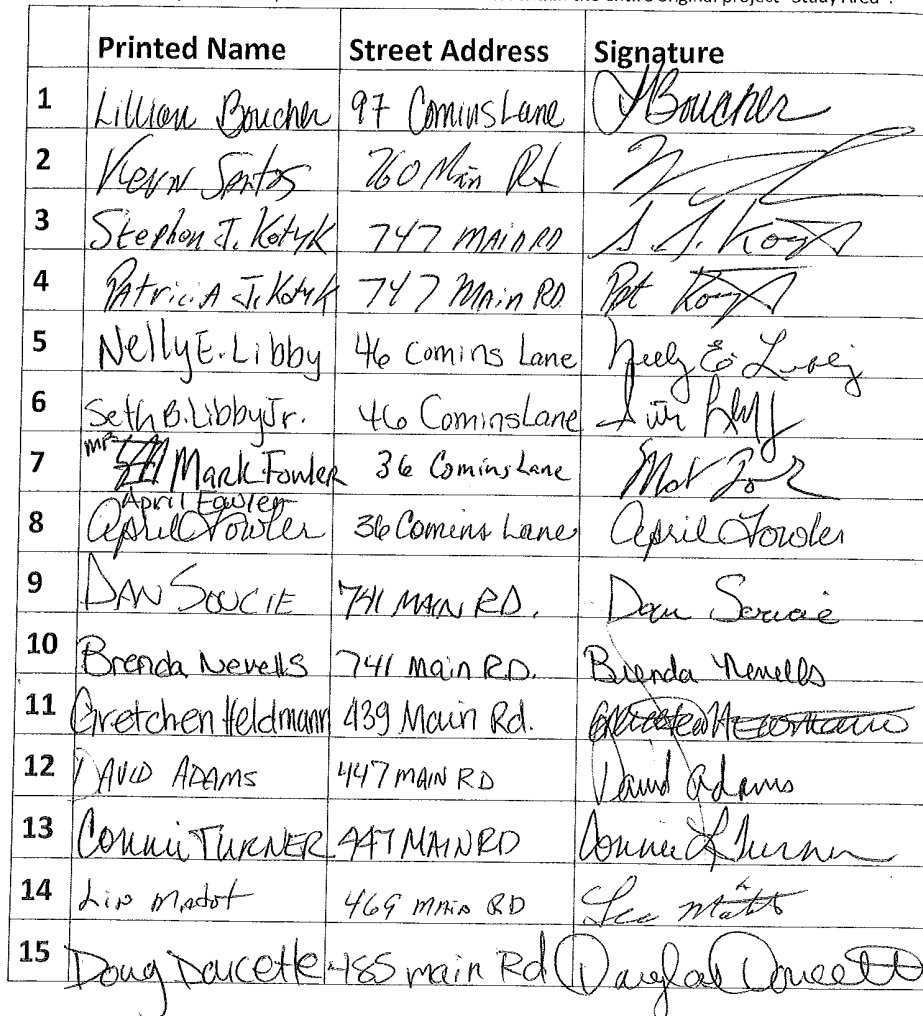 the entire original project "Study Area".
Printed Name Street Address Signature
1 Lillian Boucher 97 Comins Lane Boucher
2 Kevin Santos 760 Main Rd
3 Stephen J. Kotyk 747 MAIN RD S. J. Kotyk
4 PAtriciA J. Kotyk 747 Main RD. Pat Kotyk
5 Nelly E. Libby 46 Comins Lane Nelly E. Libby
6 Seth B. Libby Jr. 46 Comins Lane
7 MF Mark Fowler 36 Comins Lane
April Fowler
8 April Fowler 36 Comins Lane April Fowler
9 DAN SOUCIE 741 MAIN RD. Dan Soucie
10 Brenda Nevells 741 Main RD. Brenda Nevells
11 Gretchen Heldmann 439 Main Rd. Gretchen Heldmann
12 DAVID ADAMS 447 MAIN RD David Adams
13 Connie TURNER 447 MAIN RD Connie L Turner
14 469 MAIN RD
15 Doug Doucette 485 main Rd Douglas Doucette